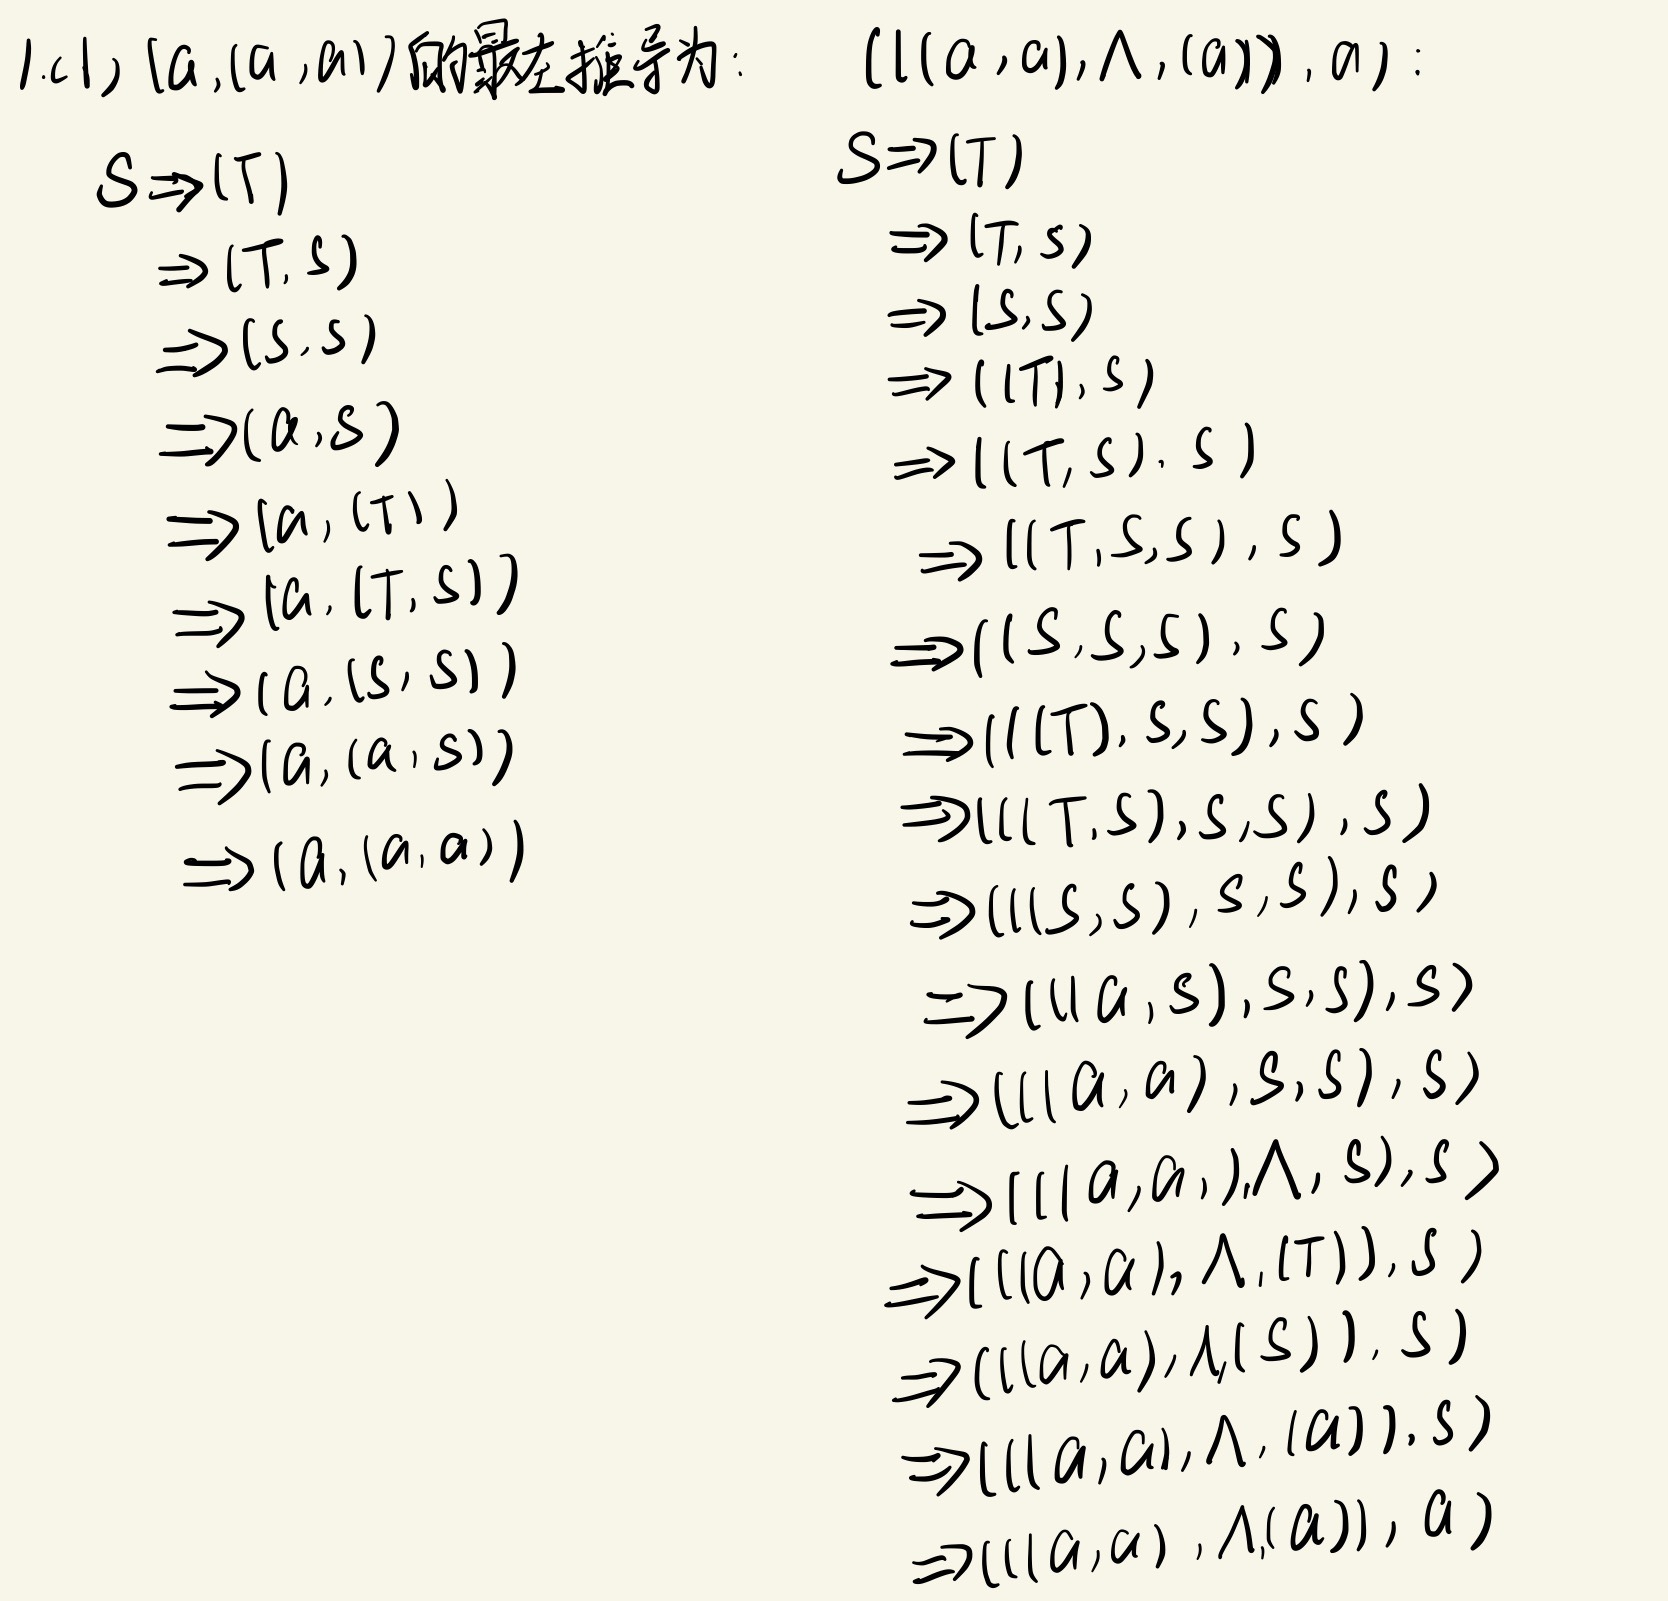 1.(1) (a,(a,a))的最左推导为:
S⇒(T)
⇒(T,S)
⇒(S,S)
⇒(a,S)
⇒(a,(T))
⇒(a,(T,S))
⇒(a,(S,S))
⇒(a,(a,S))
⇒(a,(a,a))
(((a,a),Λ,(a)),a):
S⇒(T)
⇒(T,S)
⇒(S,S)
⇒((T),S)
⇒((T,S),S)
⇒((T,S,S),S)
⇒((S,S,S),S)
⇒(((T),S,S),S)
⇒(((T,S),S,S),S)
⇒(((S,S),S,S),S)
⇒(((a,S),S,S),S)
⇒(((a,a),S,S),S)
⇒(((a,a,),Λ,S),S)
⇒(((a,a),Λ,(T)),S)
⇒(((a,a),Λ,(S)),S)
⇒(((a,a),Λ,(a)),S)
⇒(((a,a),Λ,(a)),a)